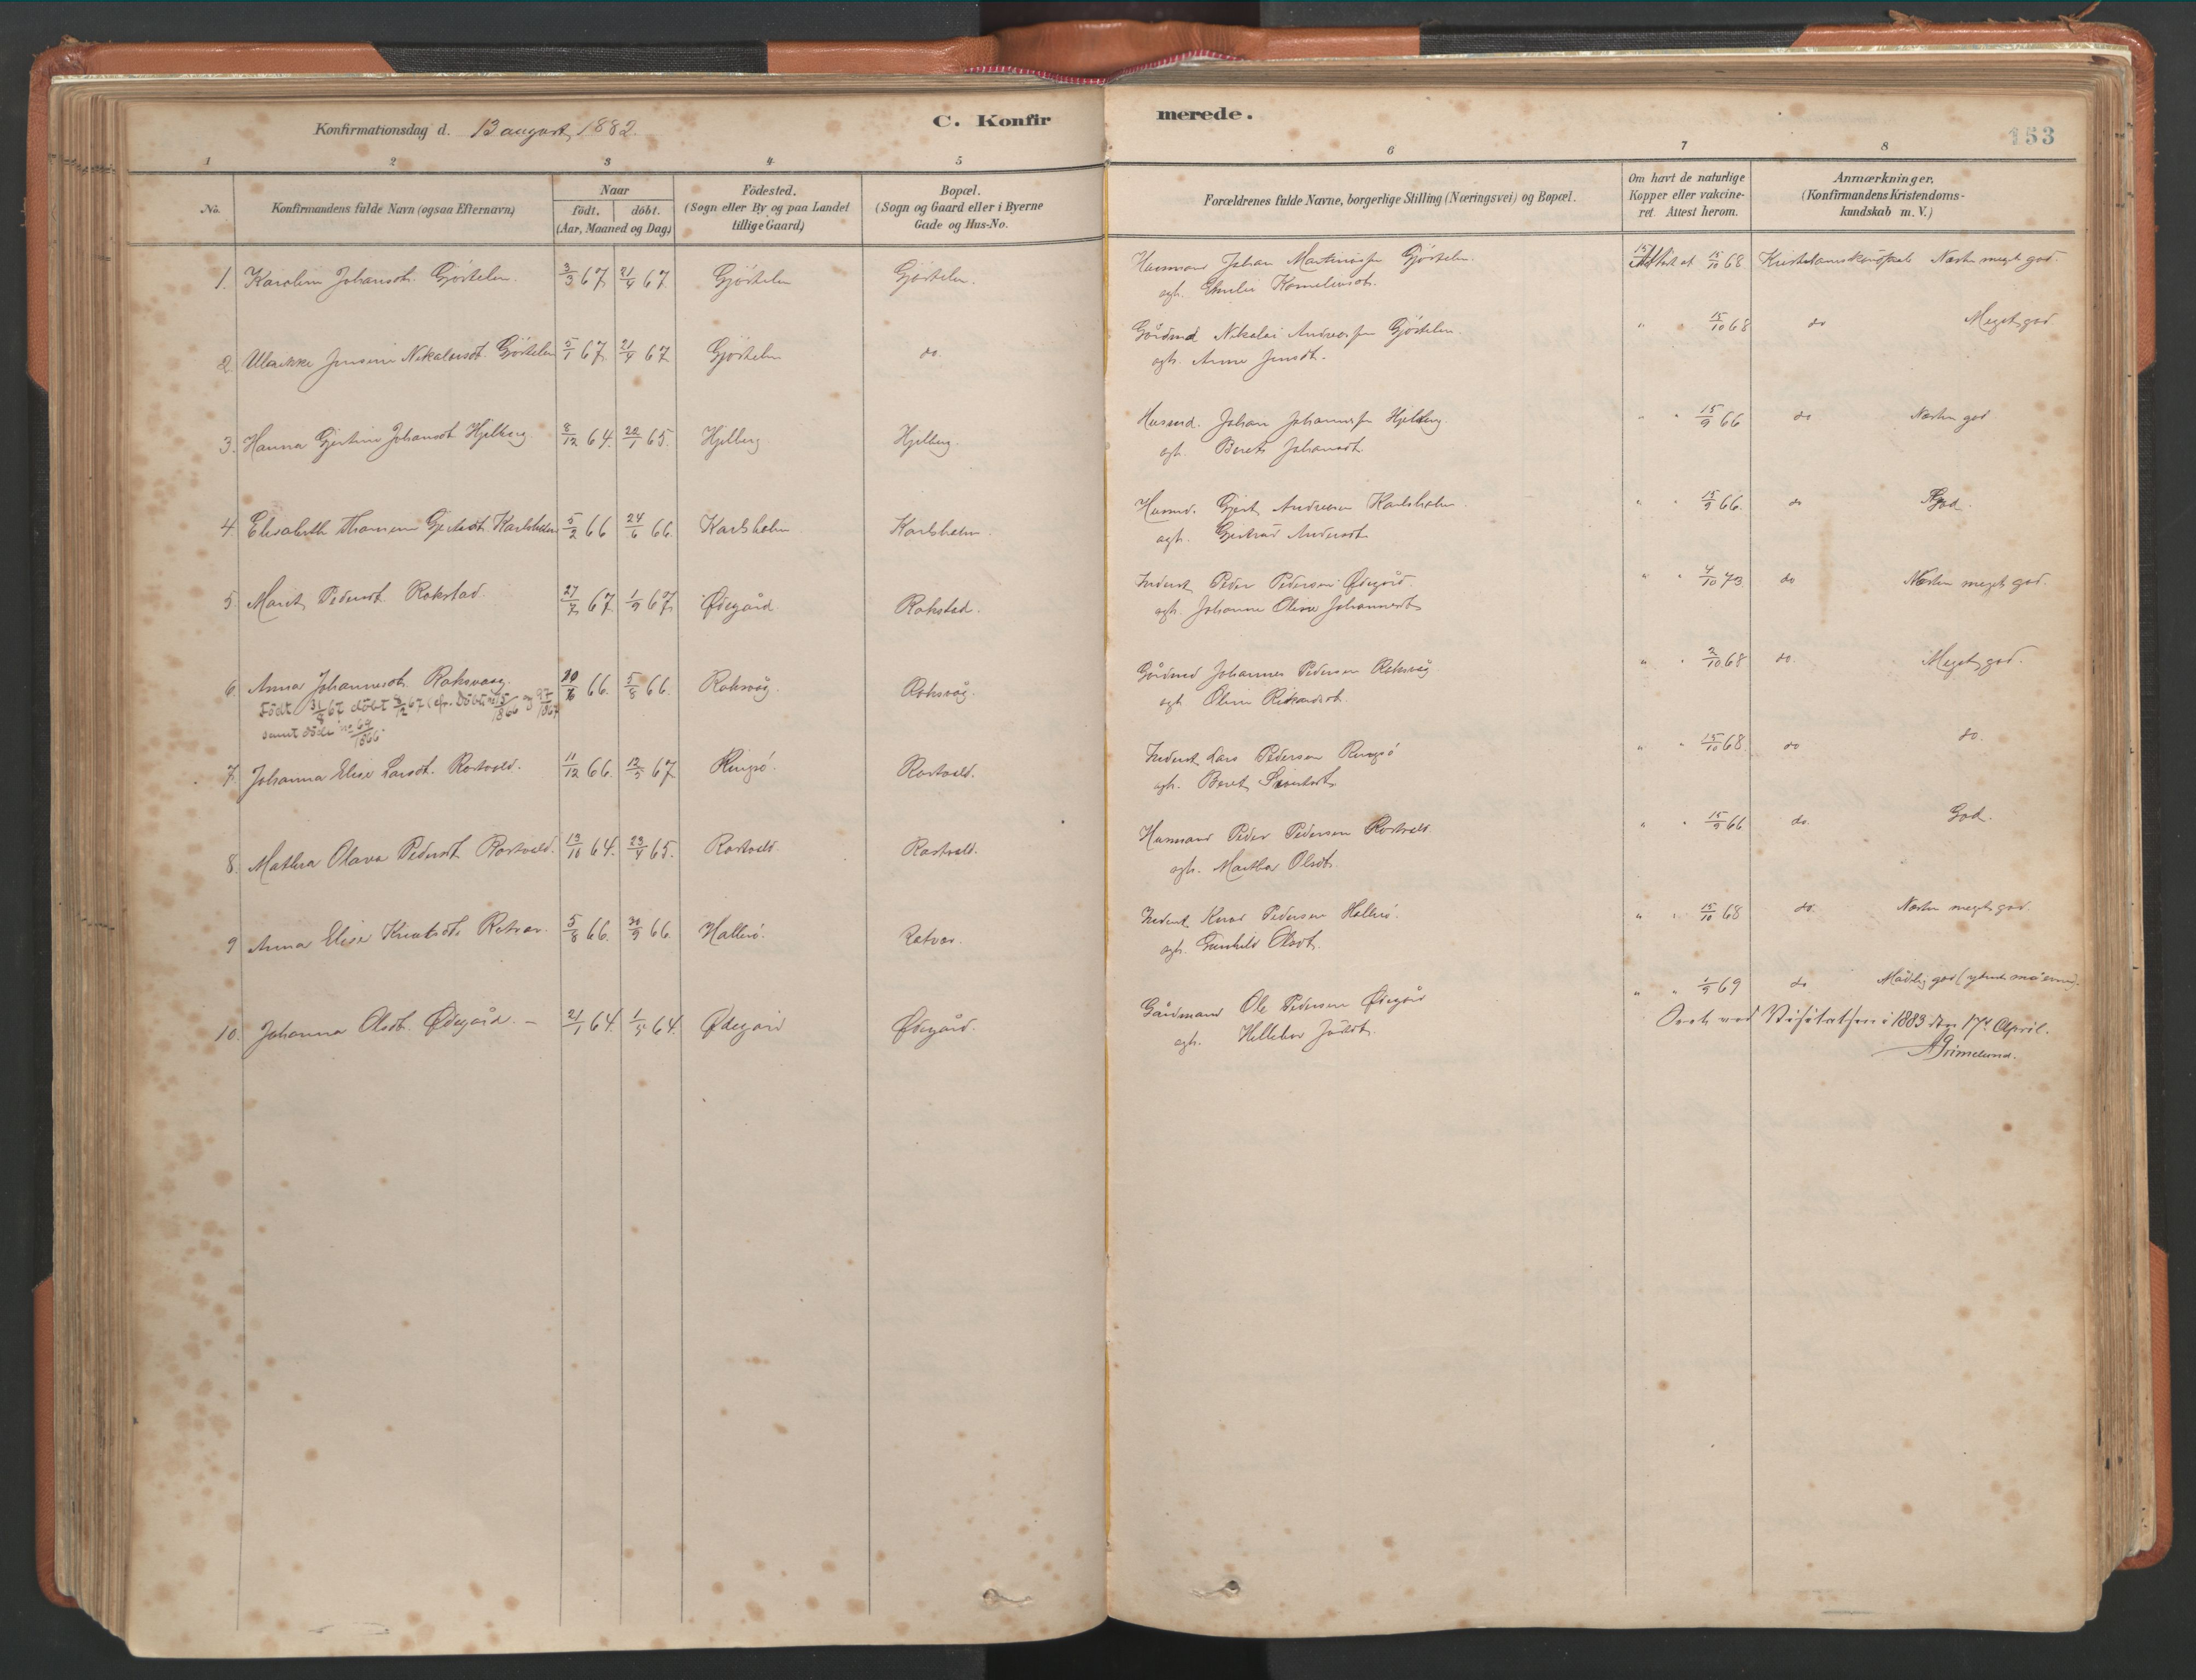 Konfirmationsdag d. 13 august 1882.
C. Konfirmerede.
153
1 2 3 4 5 6 7 8
No.
Konfirmandens fulde Navn (ogsaa Efternavn)
Naar
födt, döbt.
(Aar, Maaned og Dag)
Födested.
(Sogn eller By og paa Landet
tillige Gaard)
Bopæl.
(Sogn og Gaard eller i Byerne
Gade og Hus-No.
Forældrenes fulde Navne, borgerlige Stilling (Næringsvei) og Bopæl.
Om havt de naturlige
Kopper eller vakcine-
ret. Attest herom.
Anmærkninger,
(Konfirmandens Kristendoms-
kundskab m. V.)
1. Karoline Johansdt. Gjöstelen. 3/3 67 21/4 67 Gjöstelen Gjöstelen.
Husmand Johan Martinusen Gjöstelen. Attest at 15/10 68 Kristendomskundskab Næsten meget god.
og h. Kornelius dt.
2. Ulrikke Jensine Nikolaisdt. Gjöstelen 5/1 67 21/4 67 Gjöstelen do.
Gårdmd Nikolai Andreassen Gjöstelen. " " 15/10 68 do Meget god
og h. Anne Jensdt.
3. Hanna Gjertine Johansdt. Hjelberg. 8/12 64. 22/1 65. Hjelberg. Hjelberg.
Husmd. Johan Johannesen Hjelberg " " 15/9 66 do Næsten god
og h. Beret Johansdt.
4. Elisabeth Gjertsdt. Karlsholm 5/2 66 24/6 66. Karlsholm Karlsholm.
Husmd. Gjert Andreasen Karlsholm " " 15/9 66. do God.
og h. Gjertrud Andersdt.
5. Marit Pedersdt. Rokstad. 27/7 67. 1/9 67. Ødegård Rokstad.
Inderst Peder Pedersen Ødegård. " " 4/10 73. do Næsten meget god.
og h. Johanne Oline Johannesdt.
6. Anna Johannesdt. Roksvaag. 20/6 66. 5/8 66. Roksvåg. Roksvåg.
Födt 31/8 67 döbt 8/12 67 (cfr. Döbte 15/1866 og 97/1867
samt döde no 64/1866
Gårdmd Johannes Pedersen Roksvåg " " 2/10 68 do. Meget god.
og h. Oline Rikardsdt.
7. Johanna Elise Larsdt. Rostvold. 11/12 66. 12/5 67 Ringsö. Rostvold.
Inderst Lars Pedersen Ringsö " " 15/10 68. do do.
og h. Beret Sivertsdt.
8. Mathea Olava Pedersdt. Rostvold. 13/10 64. 23/4 65. Rostvold. Rostvold.
Husmand Peder Pedersen Rostvold. " " 15/9 66 do. God.
og h. Martha Olsdt.
9 Anna Elise Knutsdt. Betvær. 5/8 66. 30/9 66. Hallerö. Betvær.
Inderst Knud Pedersen Hallerö. " " 15/10 68 do. Næsten meget god
og h. Gunhild Olsdt.
10. Johanna Olsdt. Ødegård. - 21/1 64. 1/5 64. Ødegård Ødegård.
Gårdmand Ole Pedersen Ødegård " " 1/9 69 do Mådelig god
og h. Hellebor
Seet ved Visitatsen i 1883 den 17de April.
A. Grimelund.